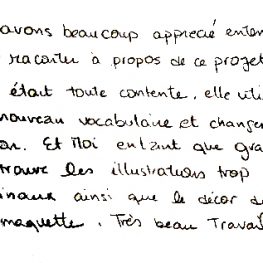 avons beaucoup apprécié enten
racorter à propos de ce projet
était toute contente. elle uti
nouveau vocabulaire et changer
on. Et Moi entant que gra
trouve les illustrations trop
inaux ainsi que le décor d
maquette. Très beau Travail